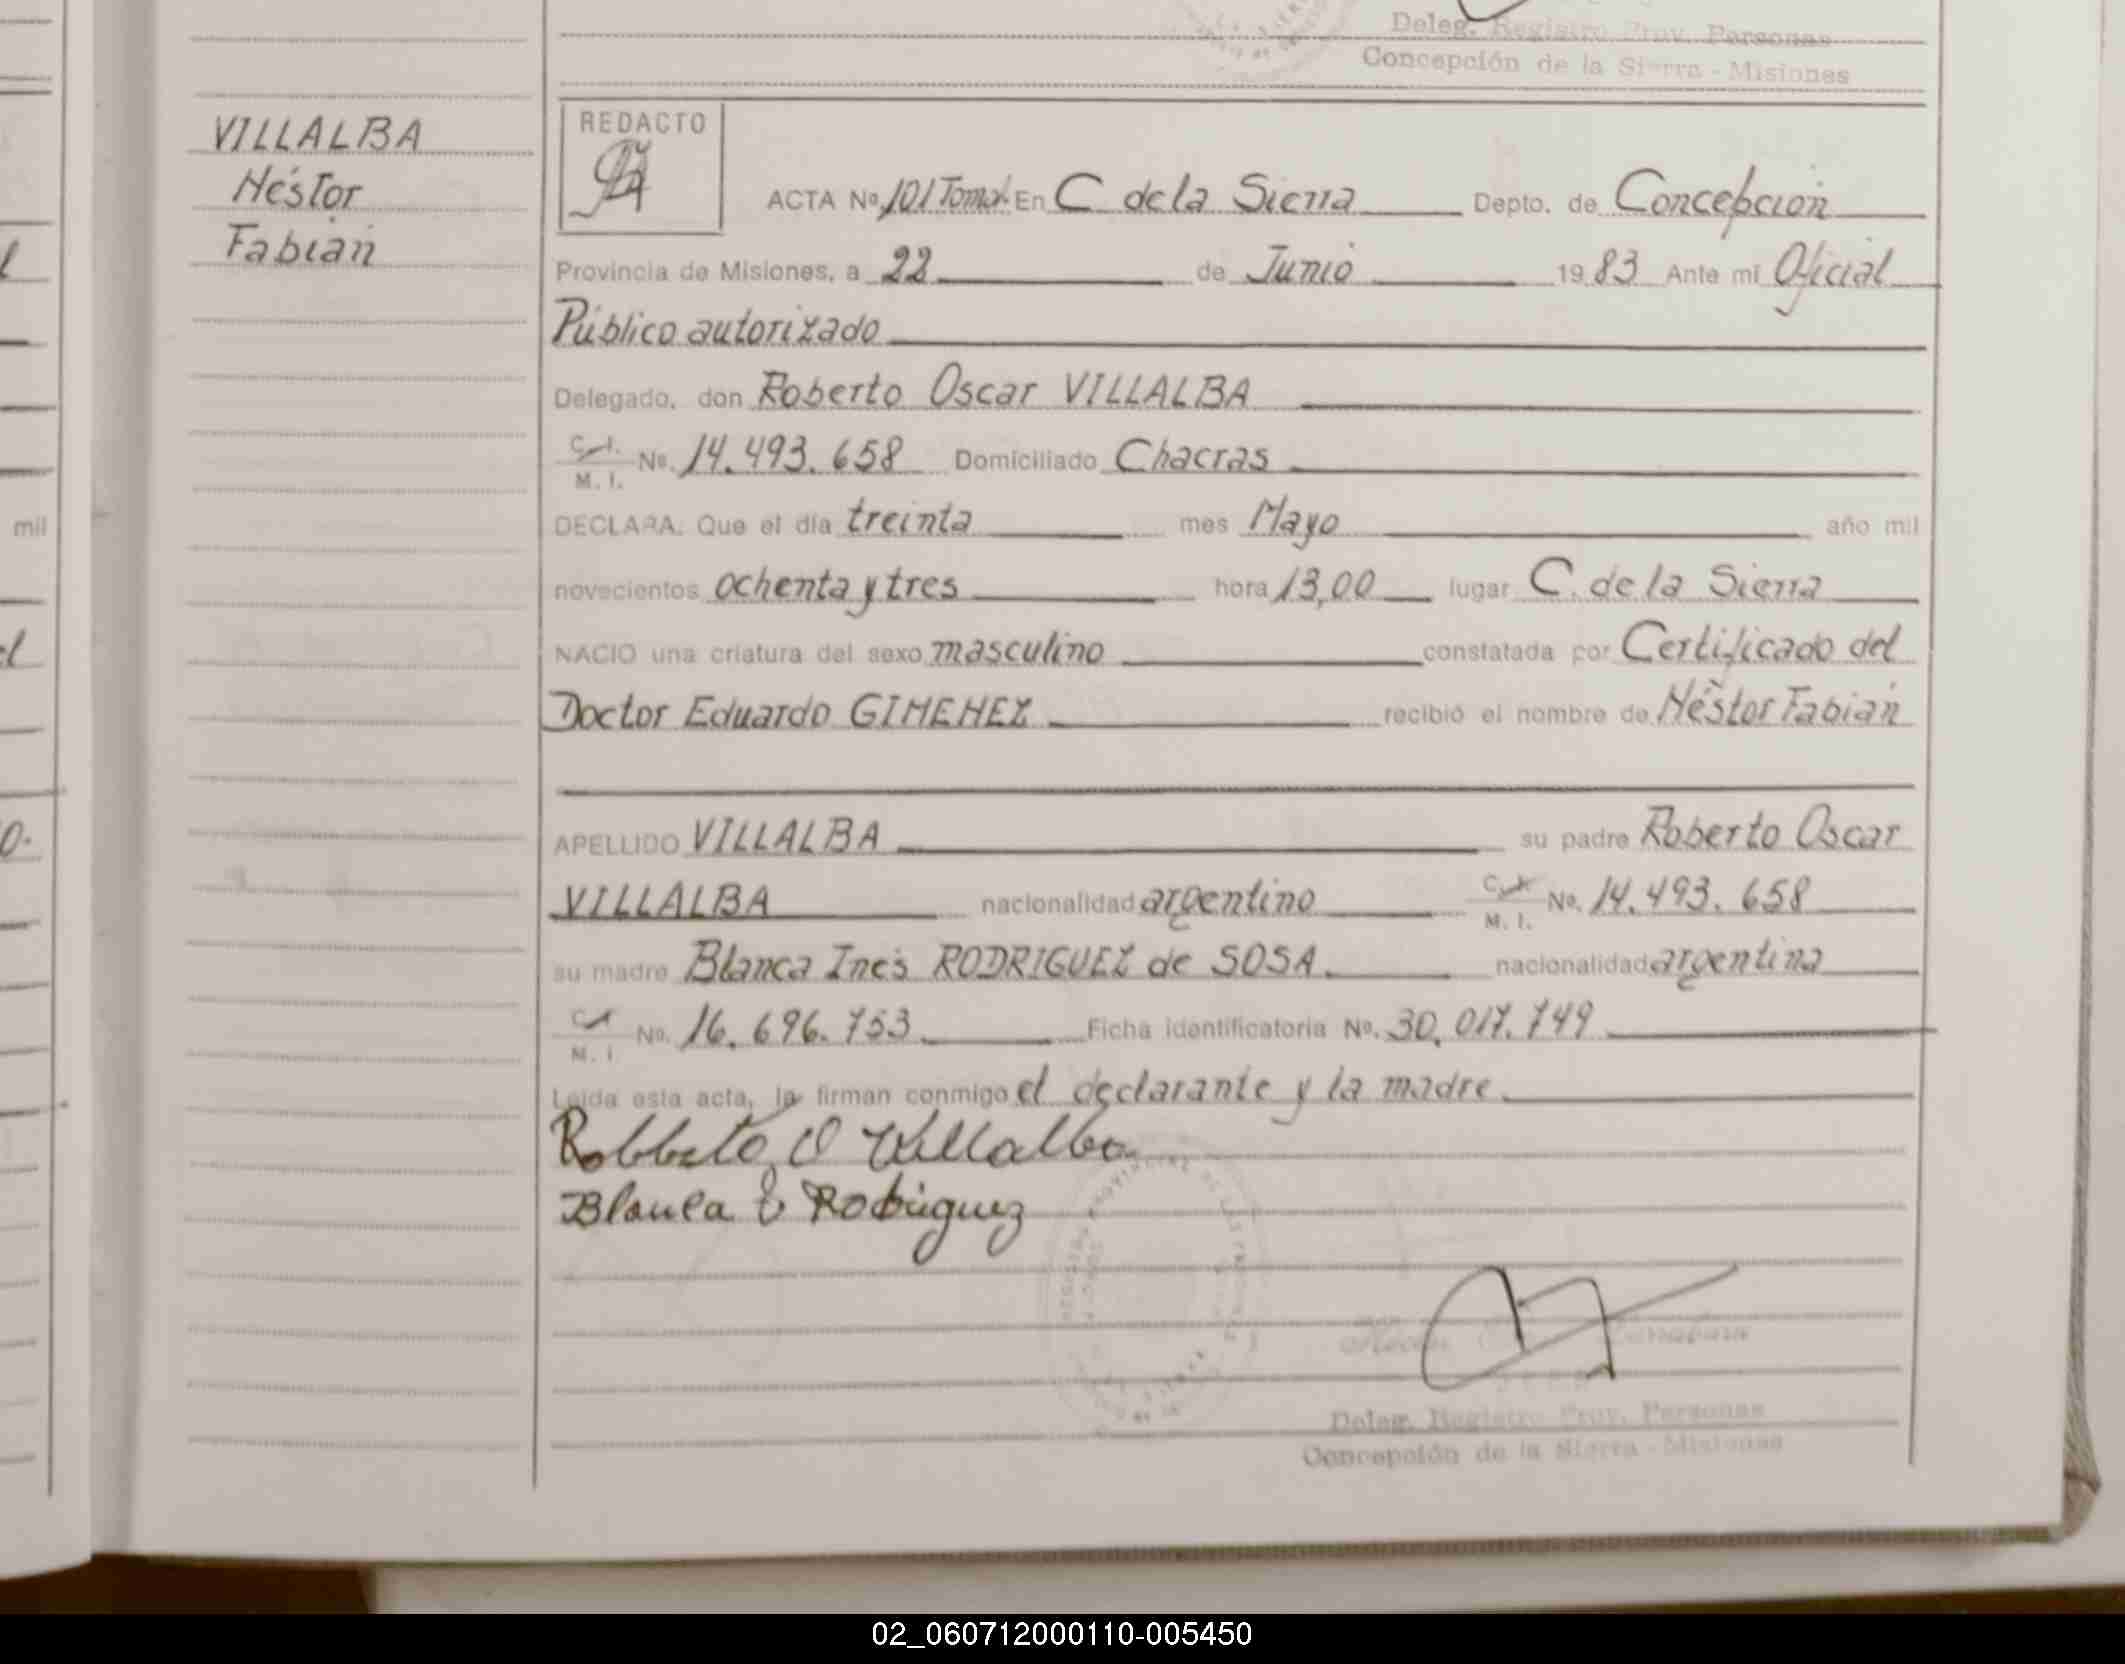 Deleg. Registro Prov. Personas
Concepción de la Sierra - Misiones
VILLALBA
Néstor
Fabián
REDACTO
ACTA Nº 101 Tomo I En C de la Sierra Depto. de Concepción
Provincia de Misiones, a 22 de Junio 1983 Ante mí Oficial
Público autorizado
Delegado, don Roberto Oscar VILLALBA
C. I. M. I. Nº. 14.493.658 Domiciliado Chacras
DECLARA: Que el día treinta mes Mayo año mil
novecientos ochenta y tres hora 13,00 lugar C. de la Sierra
NACIO una criatura del sexo masculino constatada por Certificado del
Doctor Eduardo GIMENEZ recibió el nombre de Néstor Fabián
APELLIDO VILLALBA su padre Roberto Oscar
VILLALBA nacionalidad argentino C. I. M. I. Nº. 14.493.658
su madre Blanca Inés RODRIGUEZ de SOSA. nacionalidad argentina
C. I. M. I. Nº. 16.696.753 Ficha identificatoria Nº. 30.017.749
Leída esta acta, la firman conmigo el declarante y la madre.
Robberto O Villalba
Blanca I Rodriguez
Deleg. Registro Prov. Personas
Concepción de la Sierra - Misiones
mil
02_060712000110-005450